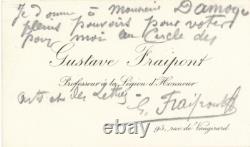 Je donne à Monsieur Damoye
pleins pouvoirs pour voter
pour moi au Cercle des
Gustave Fraipont
Professeur à la Légion d'Honneur
Arts et des Lettres
G. Fraipont
95, rue de Vaugirard